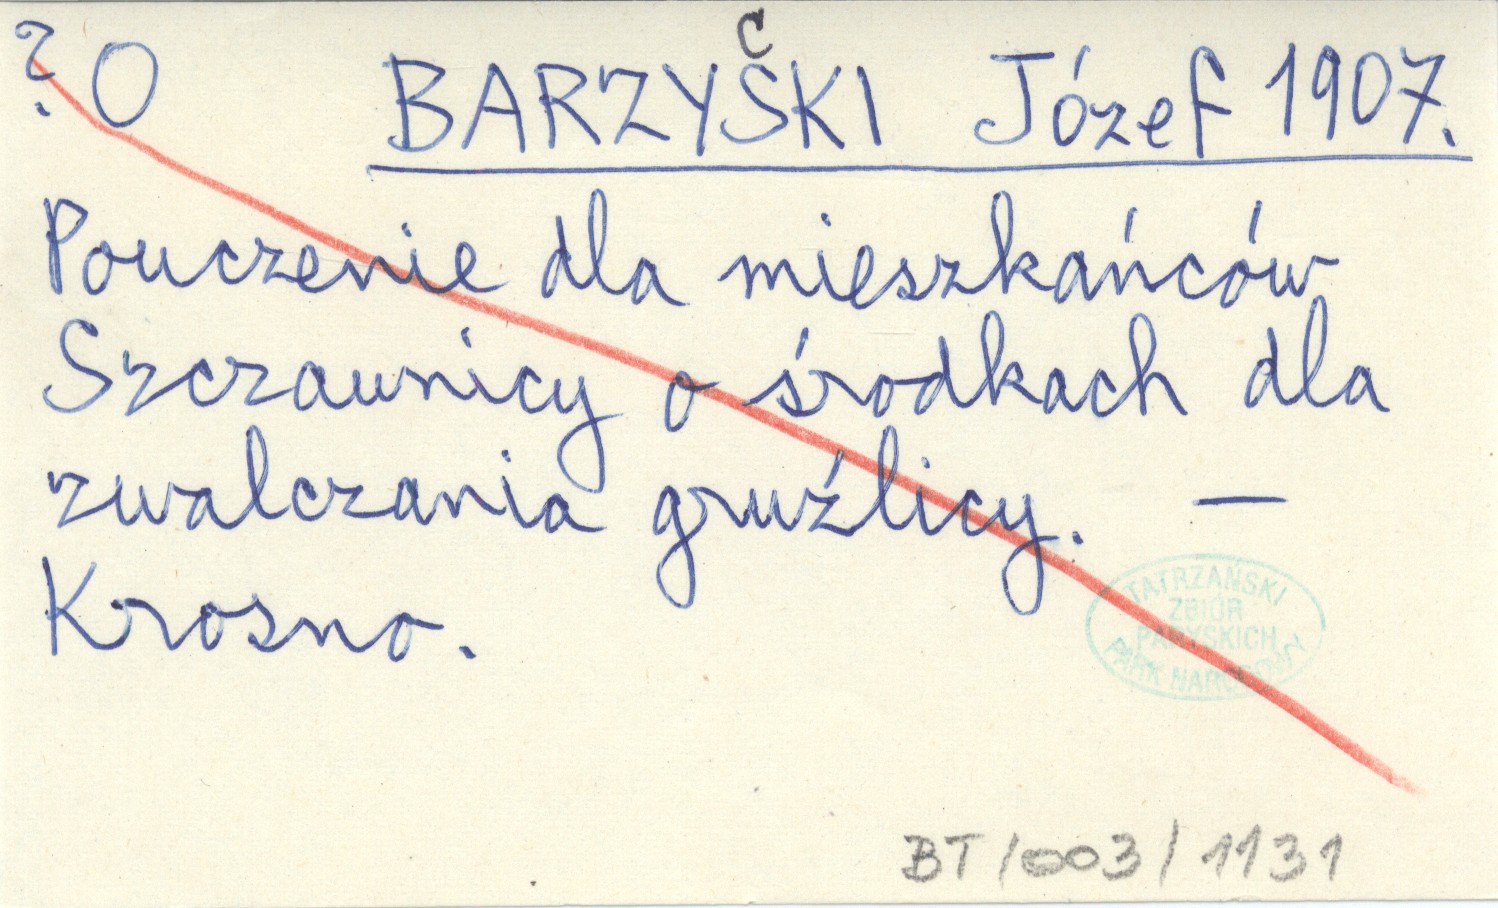 ? O BARZYŚKI Józef 1907.
c
Pouczenie dla mieszkańców
Szczawnicy o środkach dla
zwalczania gruźlicy. —
Krosno.
TATRZAŃSKI
ZBIÓR
PARYSKICH
PARK NARODOWY
BT/003/1131